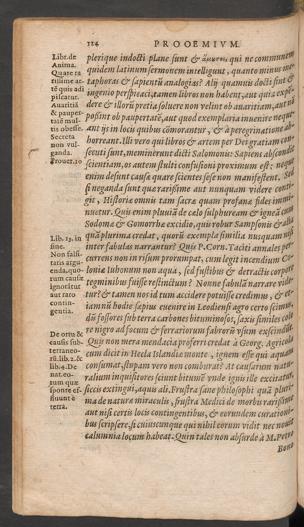 124 PROOEMIVM.
plerique indocti plane sunt & ἄμουσοι qui ne communem
quidem latinum sermonem intelligunt, quanto minus me-
taphoras & sapientũ analogias? Alij quamuis docti sint &
ingenio perspicaci, tamen libros non habent, aut quia expẽ-
dere & illorũ pretia soluere non velint ob auaritiam, aut nõ
possint ob paupertatẽ, aut quod exemplaria inuenire neque-
ant ijs in locis quibus cõmorantur, & à peregrinatione ab-
horreant. Illi vero qui libros & artem per Dei gratiam
secuti sunt, meminerunt dicti Salomonis: Sapiens abscondit
scientiam, os autem stulti confusioni proximum est; neque
enim desunt causæ quare scientes sese non manifestent. Sed
si neganda sunt quæ rarissime aut nunquam videre conti-
git, Historiæ omni tam sacræ quam profanæ fides immi-
nuetur. Quis enim pluuiã de cælo sulphuream & igneã cum
Sodomæ & Gomorrhæ excidio, quis robur Sampsonis & alia
quã plurima credat, quorũ exempla similia nusquam nisi
inter fabulas narrantur? Quis P. Corn. Taciti annales per-
currens non in risum prorumpat, cum legit incendium Co-
loniæ Iuhonum non aqua, sed fustibus & detractis corpore
tegminibus fuisse restinctum? Nonne fabulã narrare vide-
tur? & tamen nos id tum accidere potuisse credimus, & et-
iamnũ hodie sæpius euenire in Leodiensi agro certo scimus,
dũ fossores sub terra carbones bituminosos, saxis similes colo
re nigro ad focum & ferrariorum fabrorũ vsum exscindũt.
Quis non mera mendacia proferri credat à Georg. Agricola
cum dicit in Hecla Islandiæ monte, ignem esse qui aquam
consumat, stupam vero non comburat? At causarum natu-
ralium inquisitores sciunt bitumẽ vnde ignis ille excitatur,
siccis extingui, aquis ali. Frustra sane philosophi quã pluri-
ma de naturæ miraculis, frustra Medici de morbis rarissime
aut nisi certis locis contingentibus, & eorundem curationi-
bus scripsere, si cuiuscunque qui nihil eorum vidit nec nouit
calumnia locum habeat. Quin tales non absurde à M. Petro
Bono
Lib. de
Anima.
Quare ra
rissime ar-
tẽ quis adi
piscatur.
Auaritiã
& pauper-
tatẽ mul-
tis obesse.
Secreta
non vul-
ganda.
Prouer. 10
Lib. 13. in
fine.
Non falsi-
tatis argu-
enda, quo-
rum causa
ignoratur
aut raro
contin-
gentia.
De ortu &
causis sub-
terraneo-
rũ lib. 2. &
lib. 4. De
nat. eo-
rum quæ
sponte ef-
fluunt è
terra.